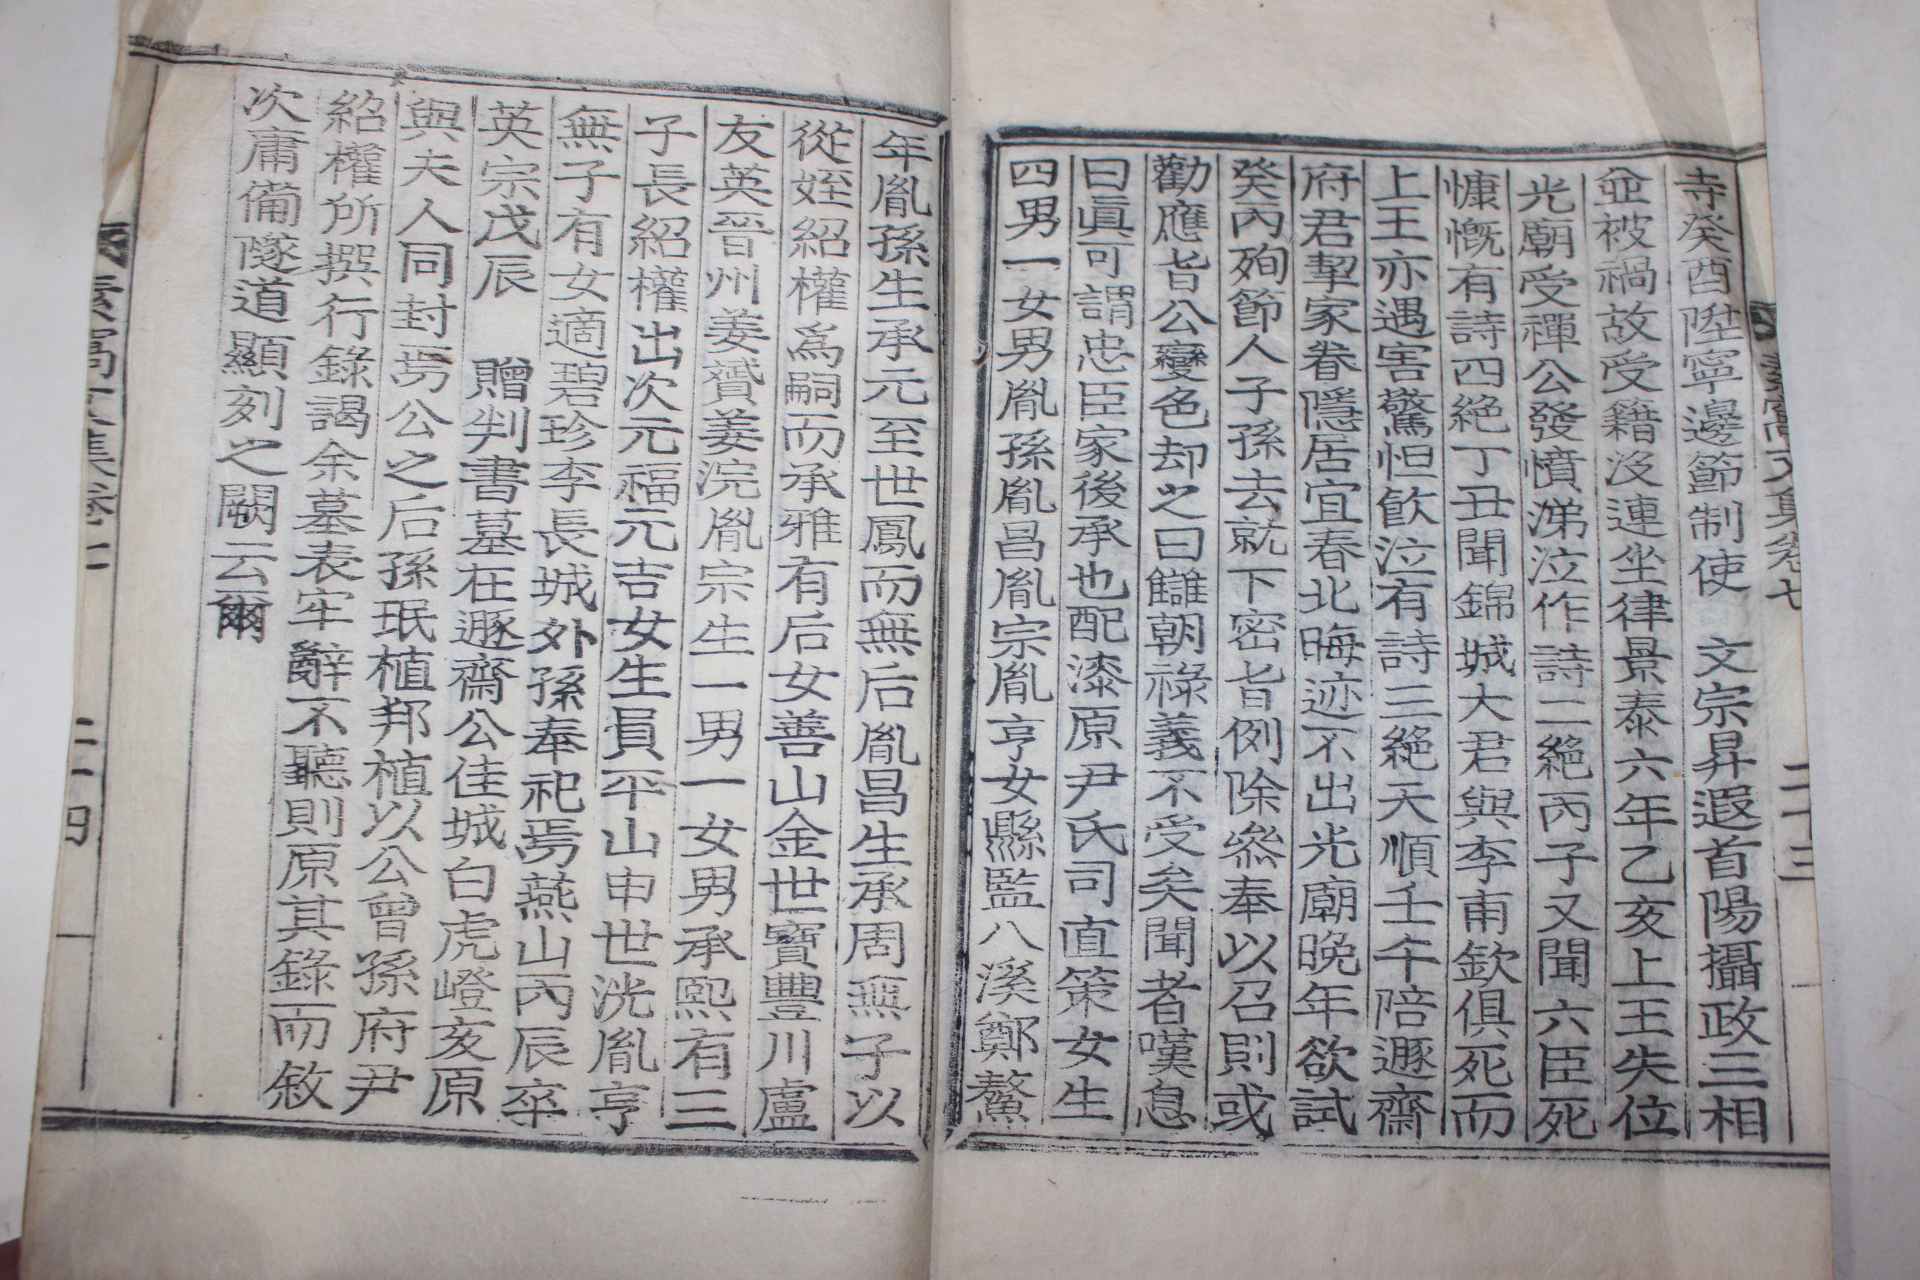 寺癸酉陞寧邊節制使 文宗昇遐首陽攝政三相
並被禍故受籍沒連坐律景泰六年乙亥上王失位
光廟受禪公發憤涕泣作詩二絶丙子又聞六臣死
慷慨有詩四絶丁丑聞錦城大君與李甫欽俱死而
上王亦遇害驚怛飮泣有詩三絶天順壬午陪遯齋
府君挈家眷隱居宜春北晦迹不出光廟晩年欲試
癸丙殉節人子孫去就下密旨例除叅奉以召則或
勸應旨公變色却之曰讎朝祿義不受矣聞者嘆息
曰眞可謂忠臣家後承也配漆原尹氏司直策女生
四男一女男胤孫胤昌胤宗胤亨女縣監八溪鄭鰲
年胤孫生承元至世鳳而無后胤昌生承周無子以
從姪紹權爲嗣而承雅有后女善山金世寶豐川盧
友英晉州姜贇姜浣胤宗生一男一女男承熙有三
子長紹權出次元福元吉女生員平山申世洸胤亨
無子有女適碧珍李長城外孫奉祀焉燕山丙辰卒
英宗戊辰 贈判書墓在遯齋公佳城白虎嶝亥原
與夫人同封焉公之后孫珉植邦植以公曾孫府尹
紹權所撰行錄謁余墓表牢辭不聽則原其錄而敘
次庸備隧道顯刻之闕云爾
文集卷七
二十三
二十四